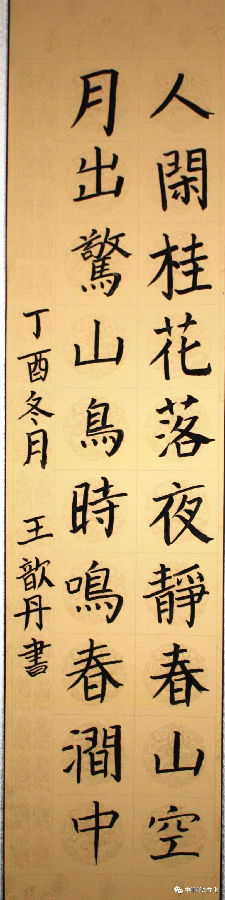 人閑桂花落夜靜春山空
月出驚山鳥時鳴春澗中
丁酉冬月 王歆丹書